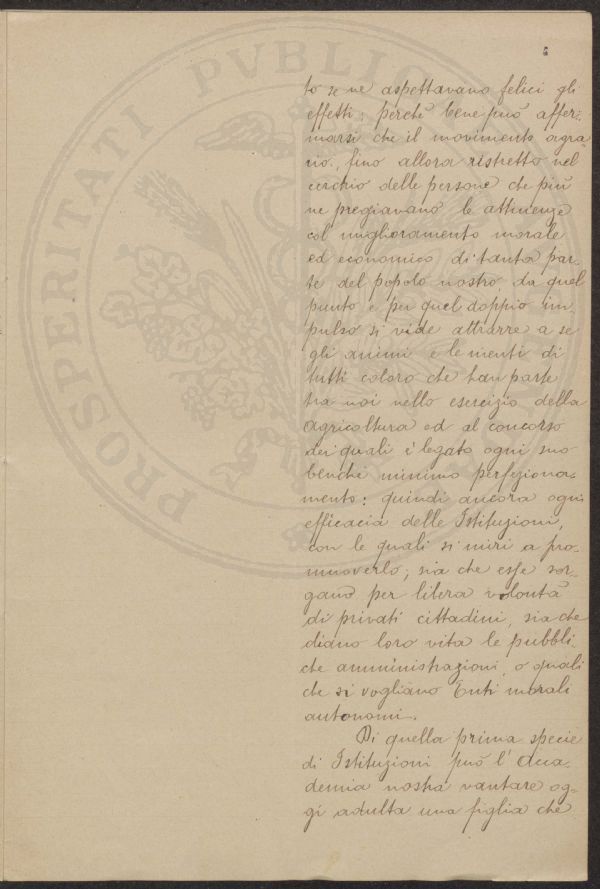 PROSPERITATI PVBLIC
to se ne aspettavano felici gli
effetti: perchè bene può affer-
marsi che il movimento agra-
rio, fino allora ristretto nel
cerchio delle persone che più
ne pregiavano le attinenze
col miglioramento morale
ed economico di tanta par-
te del popolo nostro, da quel
punto e per quel doppio im-
pulso si vide attrarre a se
gli animi e le menti di
tutti coloro che han parte
tra noi nello esercizio della
agricoltura ed al concorso
dei quali è legato ogni suo
benchè minimo perfeziona-
mento: quindi ancora ogni
efficacia delle Istituzioni,
con le quali si miri a pro-
muoverlo, sia che esse sor-
gano per libera volontà
di privati cittadini, sia che
diano loro vita le pubbli-
che amministrazioni, o quali
che si vogliano Enti morali
autonomi.
Di quella prima specie
di Istituzioni può l'Acca-
demia nostra vantare og-
gi adulta una figlia che